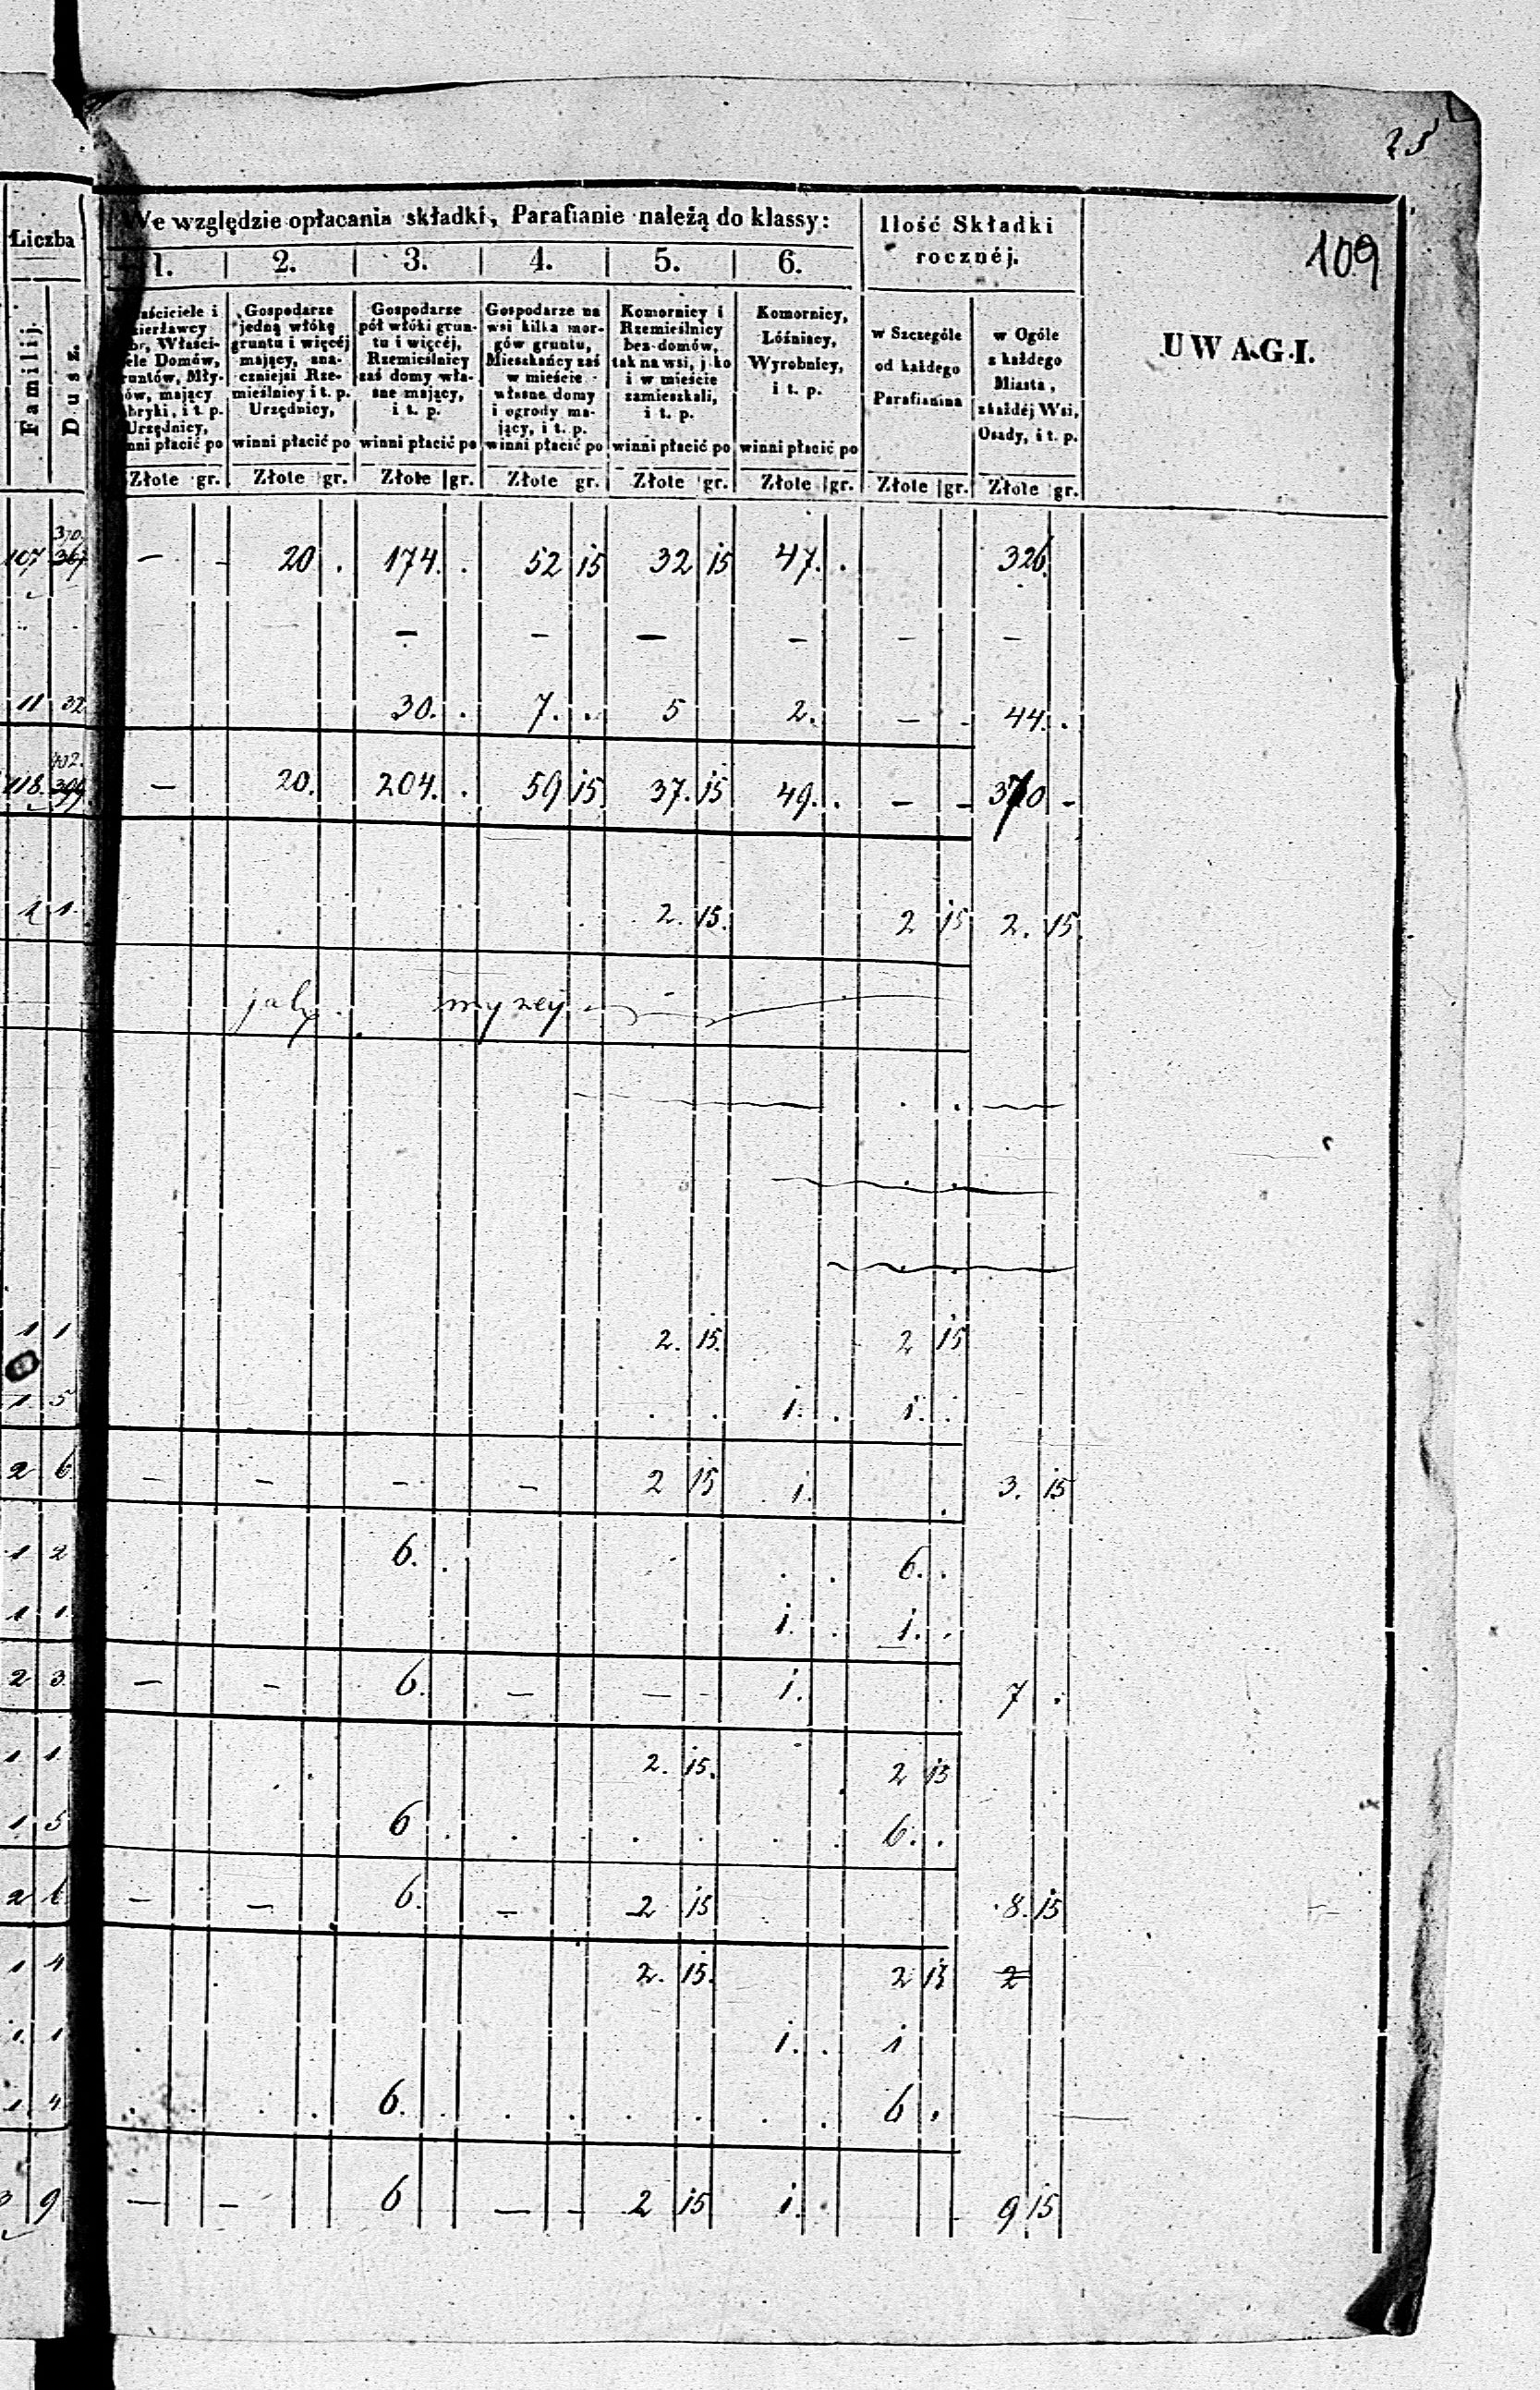 25
109
We względzie opłacania składki, Parafianie należą do klassy:
Ilość Składki rocznéj.
UWAGI.
Liczba
Familij.
Dusz.
1. 2. 3. 4. 5. 6.
Gospodarze jedną włókę gruntu i więcéj mający, znaczniejsi Rzemieślnicy i t. p. Urzędnicy, winni płacić po
Gospodarze pół włóki gruntu i więcéj, Rzemieślnicy zaś domy własne mający, i t. p. winni płacić po
Gospodarze na wsi kilka morgów gruntu, Mieszkańcy zaś w mieście własne domy i ogrody mający, i t. p. winni płacić po
Komornicy i Rzemieślnicy bez domów, tak na wsi, jako i w mieście zamieszkali, i t. p. winni płacić po
Komornicy, Wyrobnicy, i t. p. winni płacić po
w Szczególe od każdego Parafianina
w Ogóle z każdego Miasta, z każdéj Wsi, Osady, i t. p.
Złote gr. Złote gr. Złote gr. Złote gr. Złote gr. Złote gr. Złote gr. Złote gr.
370.
107 367 – – 20 . 174. . 52 15 32 15 47. . 326.
– – – – – –
11 32 30. . 7. . 5 2. – - 44. .
402.
118. 399. – 20. 204. . 59 15 37. 15 49. . – – 370 -
1 1. 2. 15. 2 15 2. 15.
1 1 2. 15. 2 15
1. 5 . . i. . i. .
2 6 – – – – 2 15 i. . 3. 15
1 2 6. . . . 6. .
1 1 i. . i. .
2 3. – – 6. – – - i. 7 .
1 1. 2. 15. 2 15
1. 5 6 . . . . . . 6. .
2 6 – – 6. – 2 15 8. 15
1 4 2. 15. 2 15 2
1. 1 i. . 1
1. 4 . . . 6. . . . . . . 6 .
3 9 – – 6 – - 2 15 i. 9 15